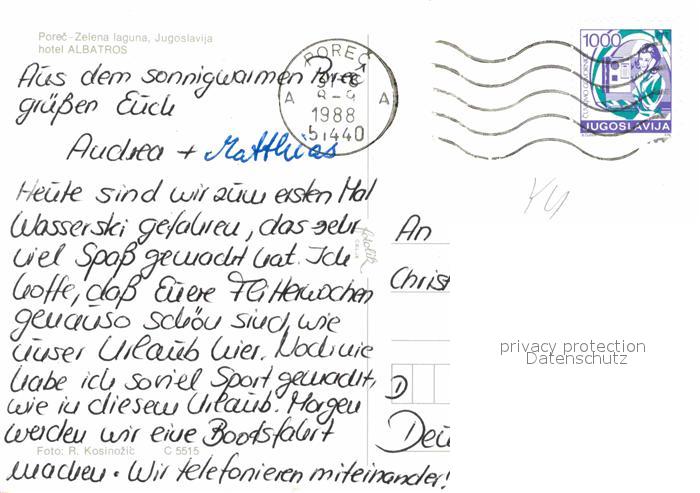 Poreč-Zelena laguna, Jugoslavija
hotel ALBATROS
Aus dem sonnigwarmen Poreč
grüßen Euch
Andrea + Matthias
Heute sind wir zum ersten Mal
Wasserski gefahren, das sehr
viel Spaß gemacht hat. Ich
hoffe, daß Euere Flitterwochen
genauso schön sind, wie
unser Urlaub hier. Noch nie
habe ich soviel Sport gemacht,
wie in diesem Urlaub. Morgen
werden wir eine Bootsfahrt
machen. Wir telefonieren miteinander!
Foto: R. Kosinožić C 5515
POREČ
8-9
A A
1988
51440
1000
JUGOSLAVIJA
YU
An
Christ
D
Deu
privacy protection
Datenschutz